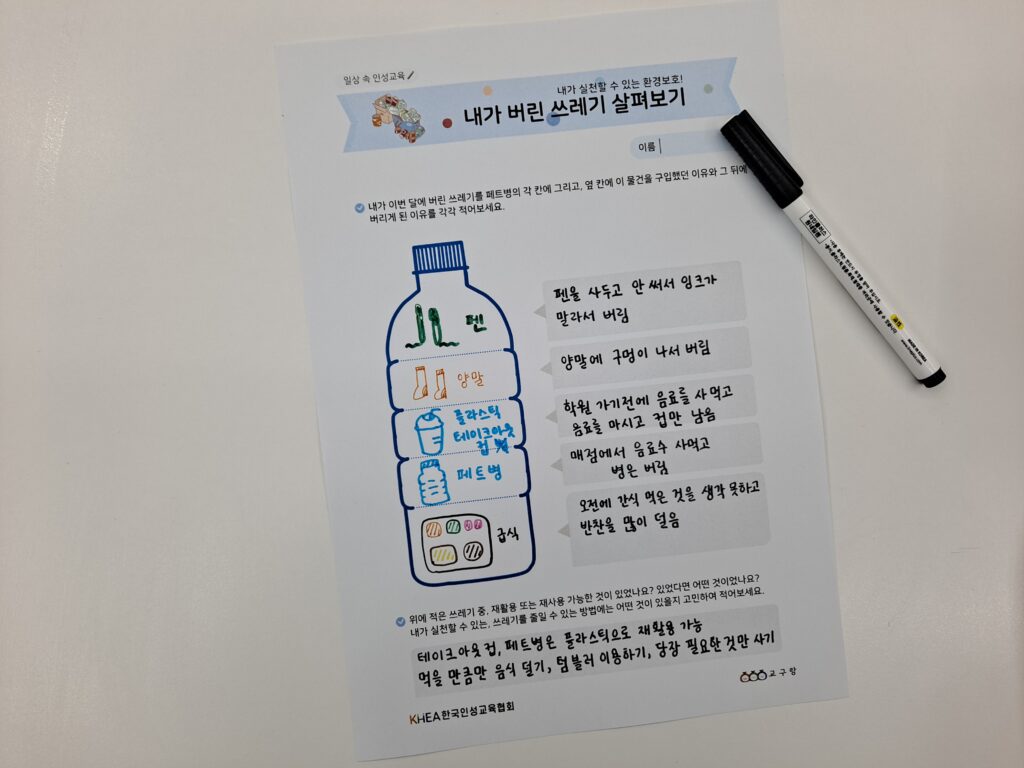 일상 속 인성교육
내가 실천할 수 있는 환경보호!
내가 버린 쓰레기 살펴보기
이름
내가 이번 달에 버린 쓰레기를 페트병의 각 칸에 그리고, 옆 칸에 이 물건을 구입했던 이유와 그 뒤에
버리게 된 이유를 각각 적어보세요.
펜
펜을 사두고 안 써서 잉크가
말라서 버림
양말
양말에 구멍이 나서 버림
플라스틱
테이크아웃
컵
학원 가기전에 음료를 사먹고
음료를 마시고 컵만 남음
페트병
매점에서 음료수 사먹고
병은 버림
급식
오전에 간식 먹은 것을 생각 못하고
반찬을 많이 덜음
위에 적은 쓰레기 중, 재활용 또는 재사용 가능한 것이 있었나요? 있었다면 어떤 것이었나요?
내가 실천할 수 있는, 쓰레기를 줄일 수 있는 방법에는 어떤 것이 있을지 고민하여 적어보세요.
테이크아웃 컵, 페트병은 플라스틱으로 재활용 가능
먹을 만큼만 음식 덜기, 텀블러 이용하기, 당장 필요한 것만 사기
KHEA한국인성교육협회
교구랑
MADE IN KOREA